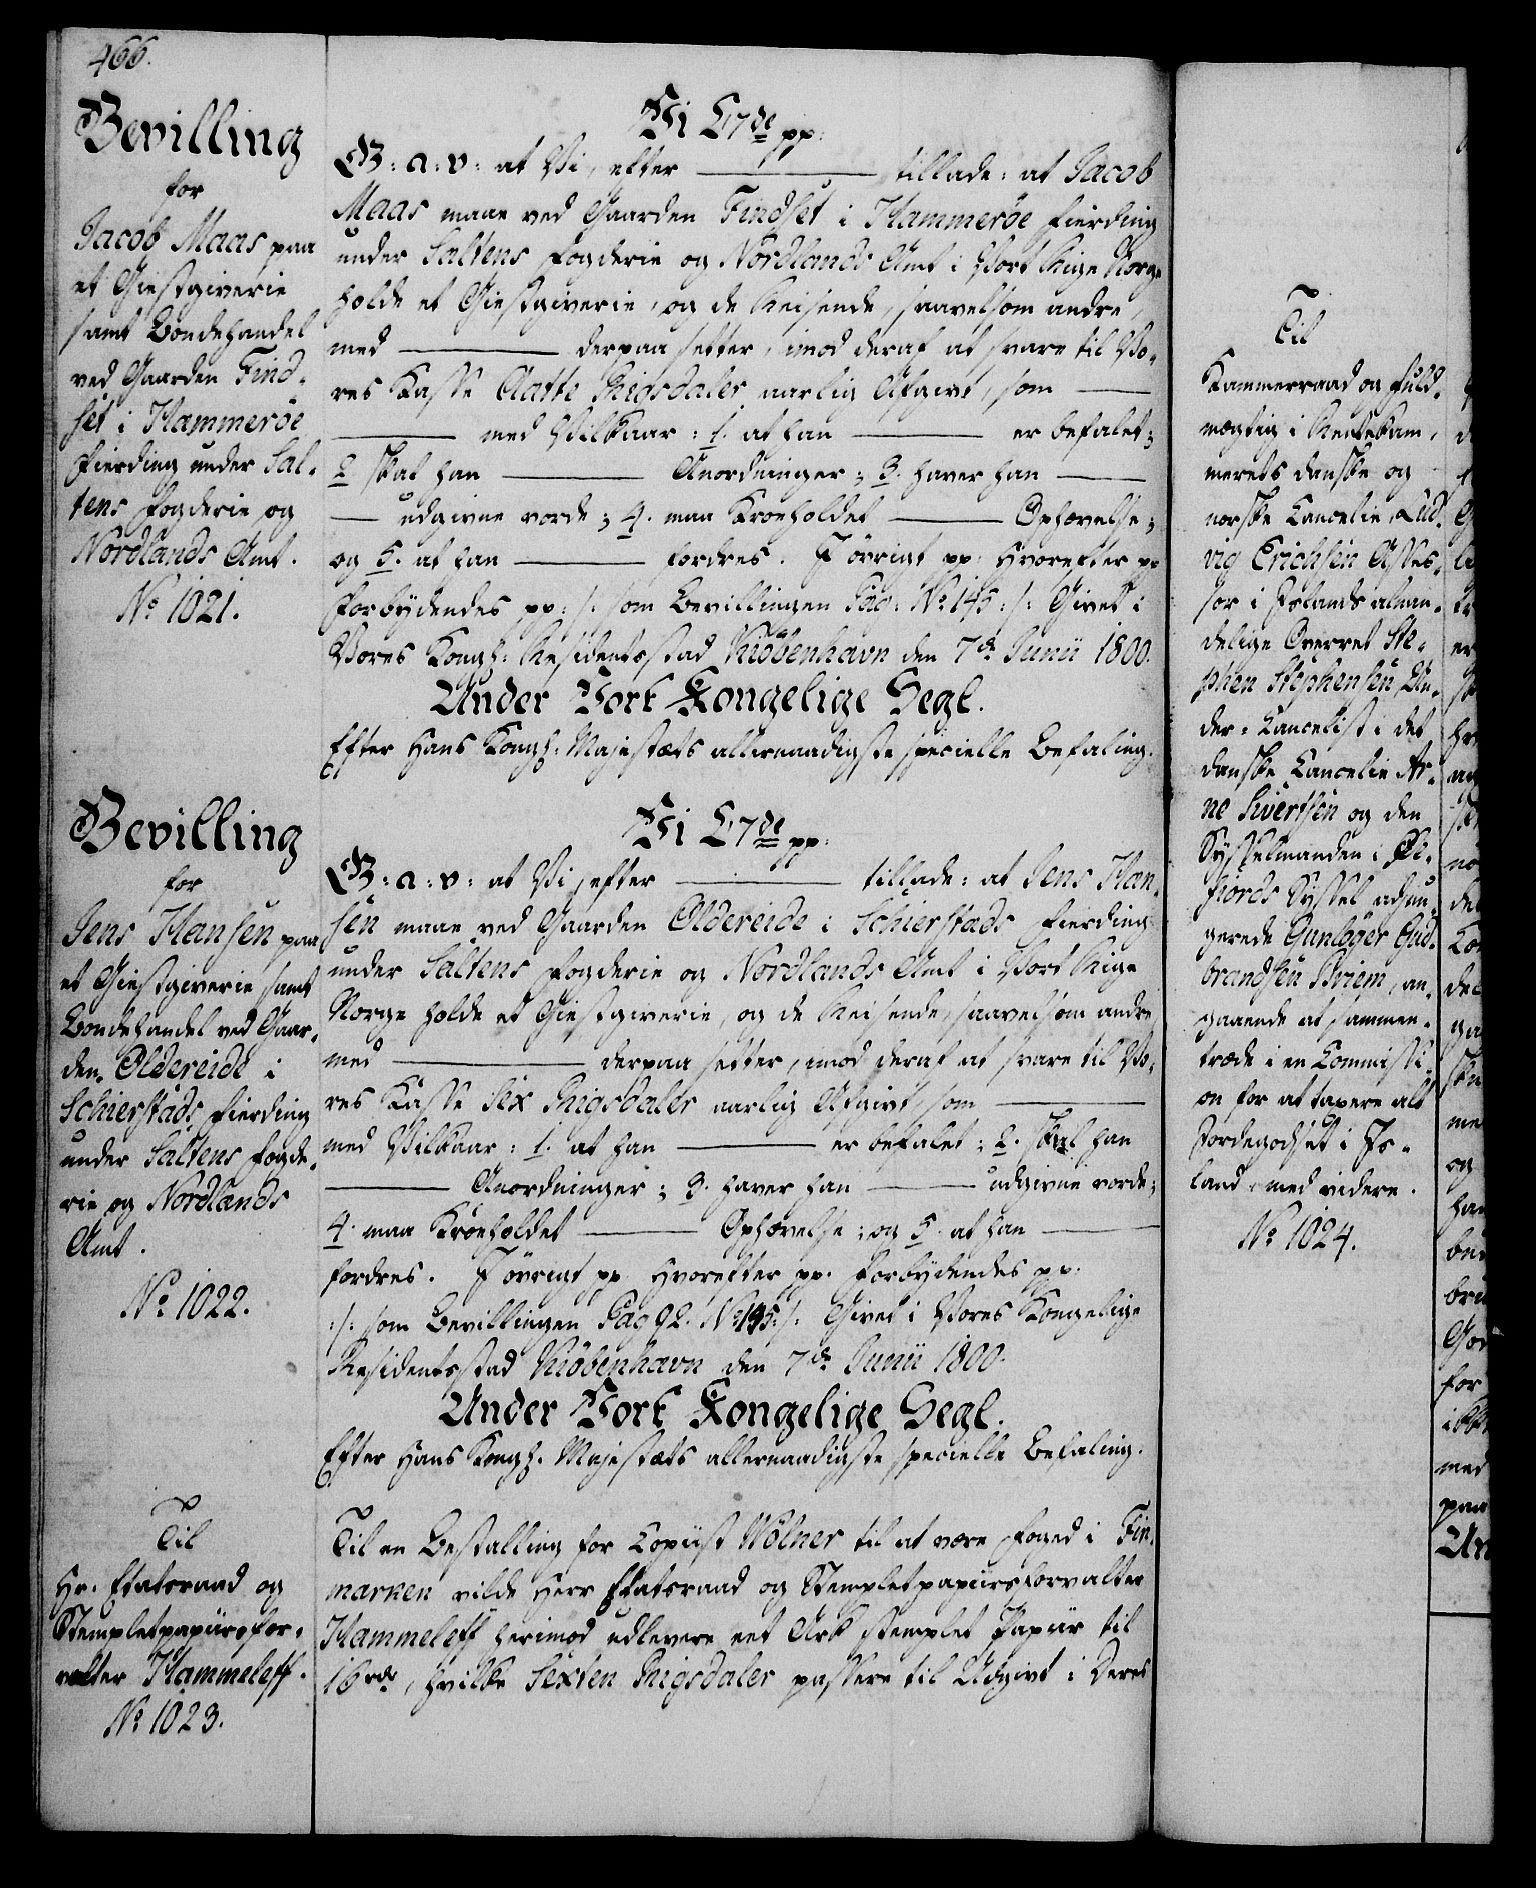 466.
Bevilling
for
Jacob Maas paa
et Giestgiverie
samt Bondehandel
ved Gaarden Find-
set i Hammeröe
Fierding under Sal-
tens Fogderie og
Nordlands Amt.
No 1021.
Vi C 7de pp:
G: a: v: at Vi, efter ——— tillade: at Jacob
Maas maae ved Gaarden Findset i Hammeröe Fierding
under Saltens Fogderie og Nordlands Amt i Vort Rige Norge
holde et Giestgiverie, og de Reisende, saavelsom andre,
med ——— derpaa setter, imod deraf at svare til Vo-
res Kasse Aatte Rigsdaler aarlig Afgivt, som ———
——— med Vilkaar: 1. at han ——— er befalet;
2 skal han ——— Anordninger; 3. haver han ———
— udgivne vorde; 4. maa Kroeholdet ——— Ophævelse;
og 5. at han ——— fordres. I övrigt pp. Hvorefter pp
Forbydendes pp: /: som Bevillingen Pag: No 145 :/: Givet i
Vores Kongl: Residentsstad Kiöbenhavn den 7de Junii 1800.
Under Vort Kongelige Segl.
Efter Hans Kongl: Majestæts allernaadigste specielle Befaling.
Bevilling
for
Jens Hansen paa
et Giestgiverie samt
Bondehandel ved Gaar-
den Oldereide i
Schierstads Fierding
under Saltens Fogde-
rie og Nordlands
Amt.
No 1022.
Vi C 7de pp:
G: a: v: at Vi, efter ——— tillade: at Jens Han-
sen maae ved Gaarden Oldereide i Schierstads Fierding
under Saltens Fogderie og Nordlands Amt i Vort Rige
Norge holde et Giestgiverie, og de Reisende, saavelsom andre
med ——— derpaa setter, imod deraf at svare til Vo-
res Kasse Sex Rigsdaler aarlig Afgivt, som ———
med Vilkaar: 1. at han ——— er befalet; 2. skal han
——— Anordninger; 3. haver han ——— udgivne vorde;
4. maa Kroeholdet ——— Ophævelse; og 5. at han ———
fordres. I övrigt pp. Hvorefter pp. Forbydendes pp.
:/: som Bevillingen Pag 92. No 145 :/: Givet i Vores Kongelige
Residentsstad Kiöbenhavn den 7de Junii 1800.
Under Vort Kongelige Segl.
Efter Hans Kongl. Majestæts allernaadigste specielle Befaling.
Til
Hr. Etatsraad og
Stempletpapiirsfor-
valter Hammeleff.
No 1023.
Til en Bestalling for Copiist Wölner til at være Foged i Fin-
marken vilde Herr Etatsraad og Stempletpapiirsforvalter
Hammeleff herimod udlevere eet Ark stemplet Papiir til
16 rdr, hvilke Sexten Rigsdaler passere til Udgivt i Deres
Til
Kammerraad og Fuld-
mægtig i Rentekam-
merets danske og
norske Cancelie, Lud-
vig Erichsen Asses-
sor i Islands almin-
delige Overret Ste-
phen Stephensen, Un-
der-Cancelist i det
danske Cancelie Ar-
ne Sivertsen og den
Sysselmanden i Øe-
fiords Syssel adjun-
gerede Gunlöger Gud-
brandsen Briem, an-
gaaende at sammen-
træde i en Commissi-
on for at taxere alt
Jordegodset i Is-
land, med videre.
No 1024.